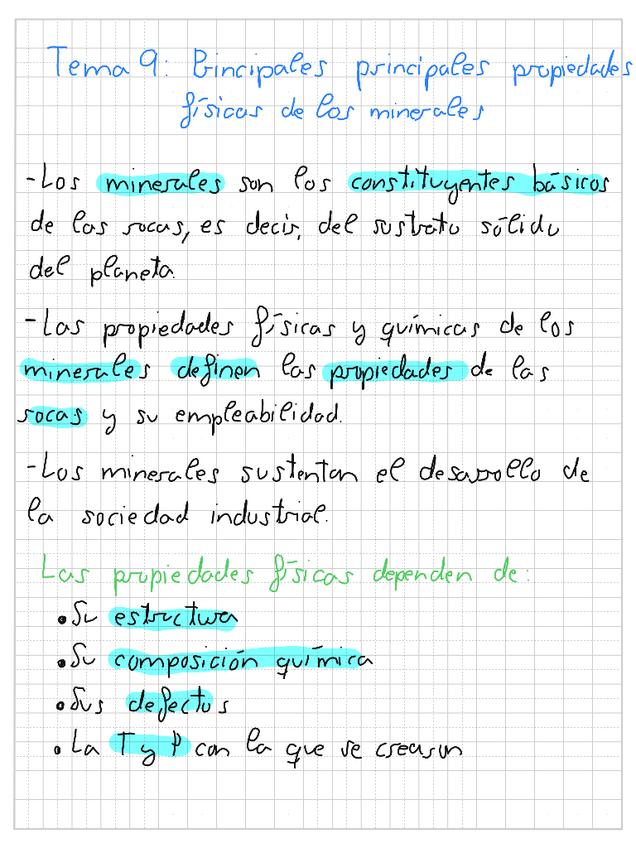 Tema 9: Principales principales propiedades
físicas de los minerales
-Los minerales son los constituyentes básicos
de las rocas, es decir, del sustrato sólido
del planeta.
-Las propiedades físicas y químicas de los
minerales definen las propiedades de las
rocas y su empleabilidad.
-Los minerales sustentan el desarrollo de
la sociedad industrial.
Las propiedades físicas dependen de:
•Su estructura
•Su composición química
•Sus defectos
•La T y P con la que se crearon